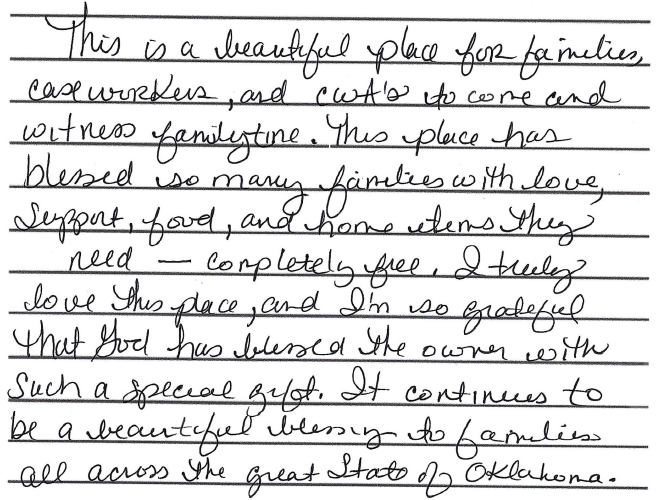 This is a beautiful place for families,
caseworkers, and CWA's to come and
witness family time. This place has
blessed so many families with love,
Support, food, and home items they
need — completely free. I truly
love this place, and I'm so grateful
that God has blessed the owner with
Such a special gift. It continues to
be a beautiful blessing to families
all across the great State of Oklahoma.